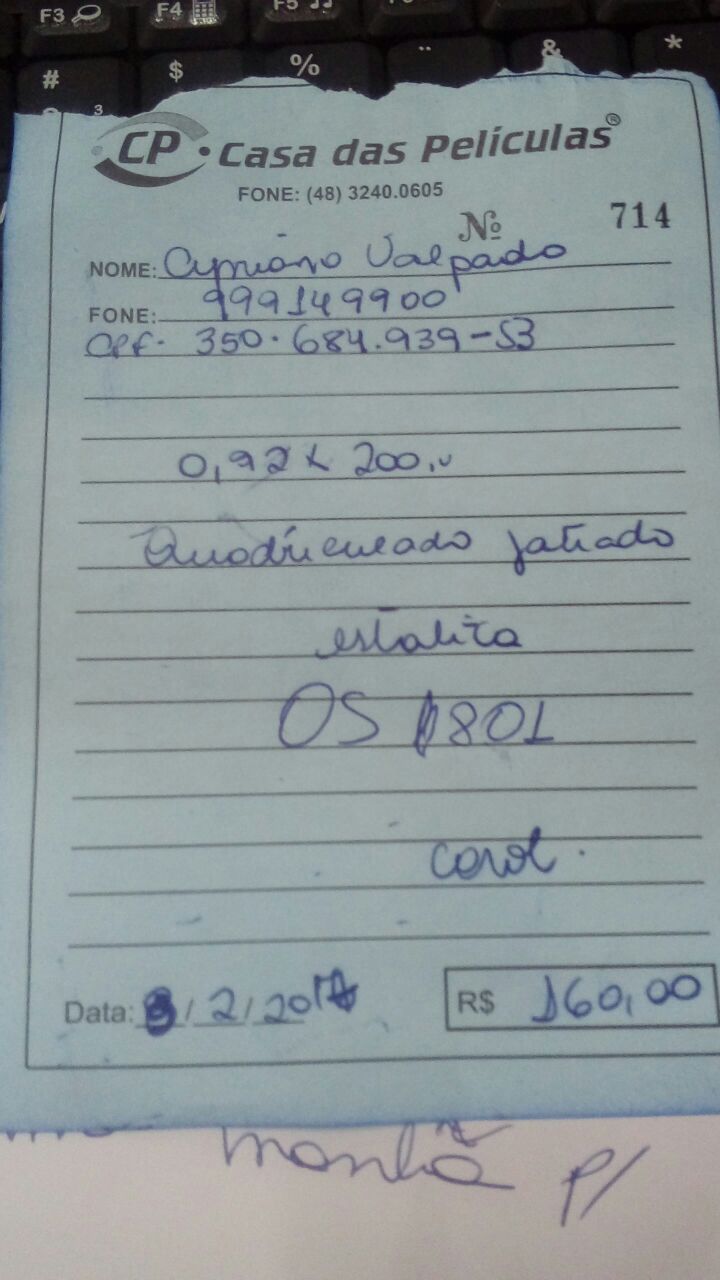 F3 F4 F5
# $ % ¨ & *
3
CP • Casa das Películas®
FONE: (48) 3240.0605
Nº 714
NOME: Cypriano Valpado
FONE: 999149900
CPF. 350.684.939-53
0,92 x 200,
Quadriculado jatiado
estalita
OS 1801
Carol.
Data: 8/2/2017 R$ 160,00
manhã p/